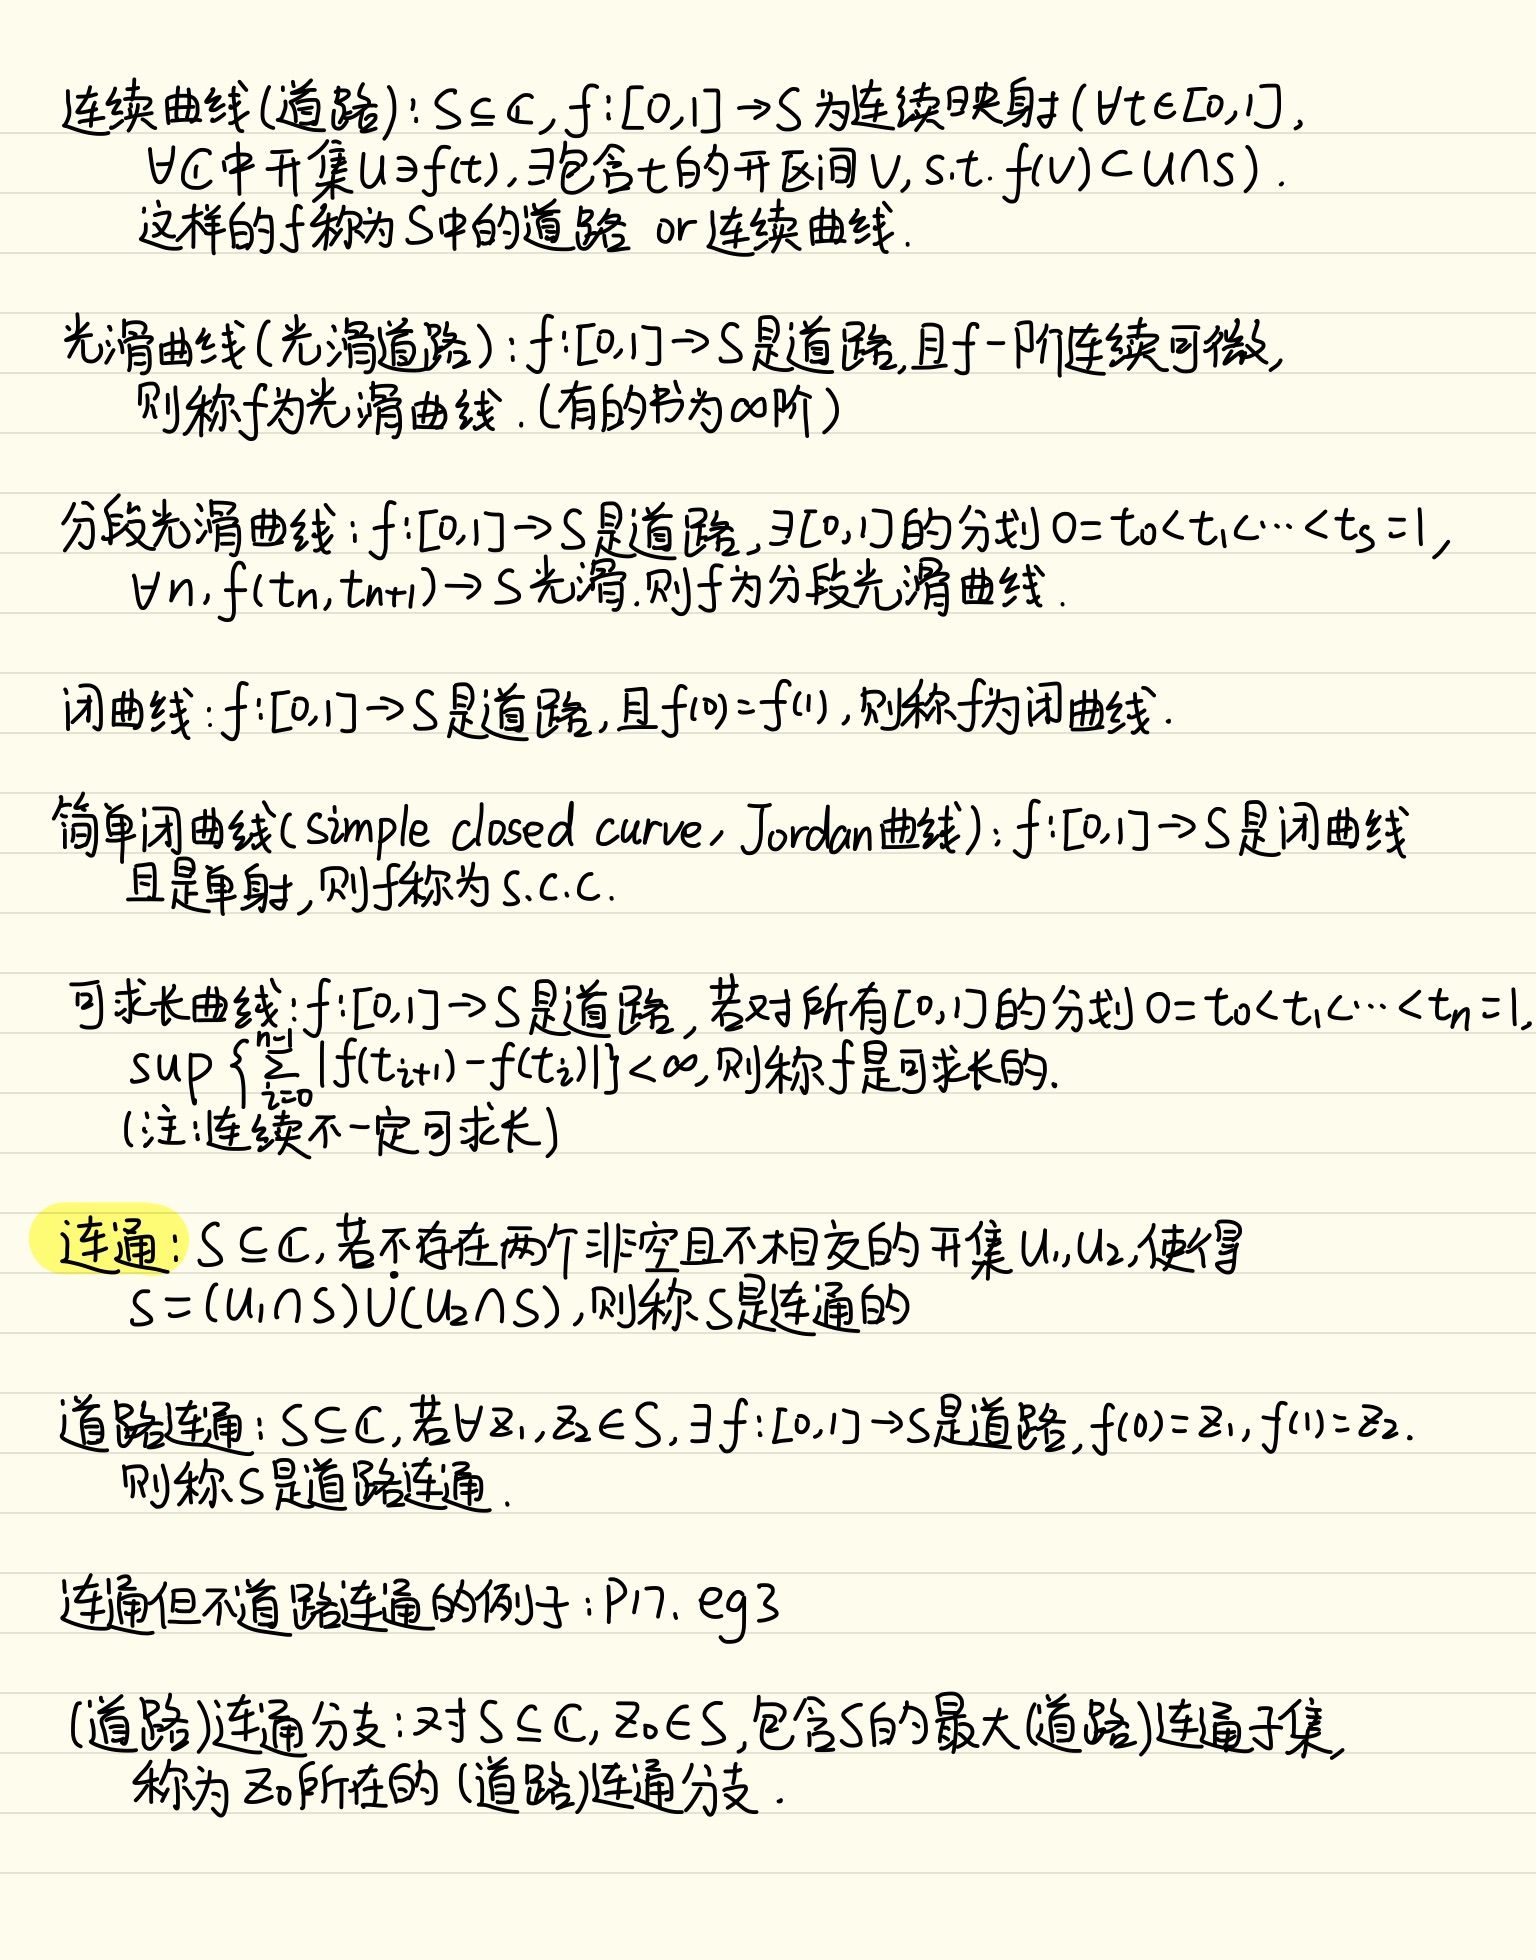 连续曲线(道路):S⊆ℂ,f:[0,1]→S为连续映射(∀t∈[0,1],
∀ℂ中开集U∋f(t),∃包含t的开区间V,s.t. f(V)⊂U∩S).
这样的f称为S中的道路 or 连续曲线.
光滑曲线(光滑道路):f:[0,1]→S是道路,且f一阶连续可微,
则称f为光滑曲线.(有的书为∞阶)
分段光滑曲线:f:[0,1]→S是道路,∃[0,1]的分划0=t₀<t₁<⋯<tₛ=1,
∀n,f(tₙ,tₙ₊₁)→S光滑.则f为分段光滑曲线.
闭曲线:f:[0,1]→S是道路,且f(0)=f(1),则称f为闭曲线.
简单闭曲线(simple closed curve, Jordan曲线):f:[0,1]→S是闭曲线
且是单射,则f称为s.c.c.
可求长曲线:f:[0,1]→S是道路,若对所有[0,1]的分划0=t₀<t₁<⋯<tₙ=1,
sup{∑_{i=0}^{n-1}|f(t_{i+1})-f(t_i)|}<∞,则称f是可求长的.
(注:连续不一定可求长)
连通:S⊆ℂ,若不存在两个非空且不相交的开集U₁,U₂,使得
S=(U₁∩S)∪̇(U₂∩S),则称S是连通的
道路连通:S⊆ℂ,若∀z₁,z₂∈S,∃f:[0,1]→S是道路,f(0)=z₁,f(1)=z₂.
则称S是道路连通.
连通但不道路连通的例子:P17. eg3
(道路)连通分支:对S⊆ℂ,z₀∈S,包含S的最大(道路)连通子集,
称为z₀所在的(道路)连通分支.